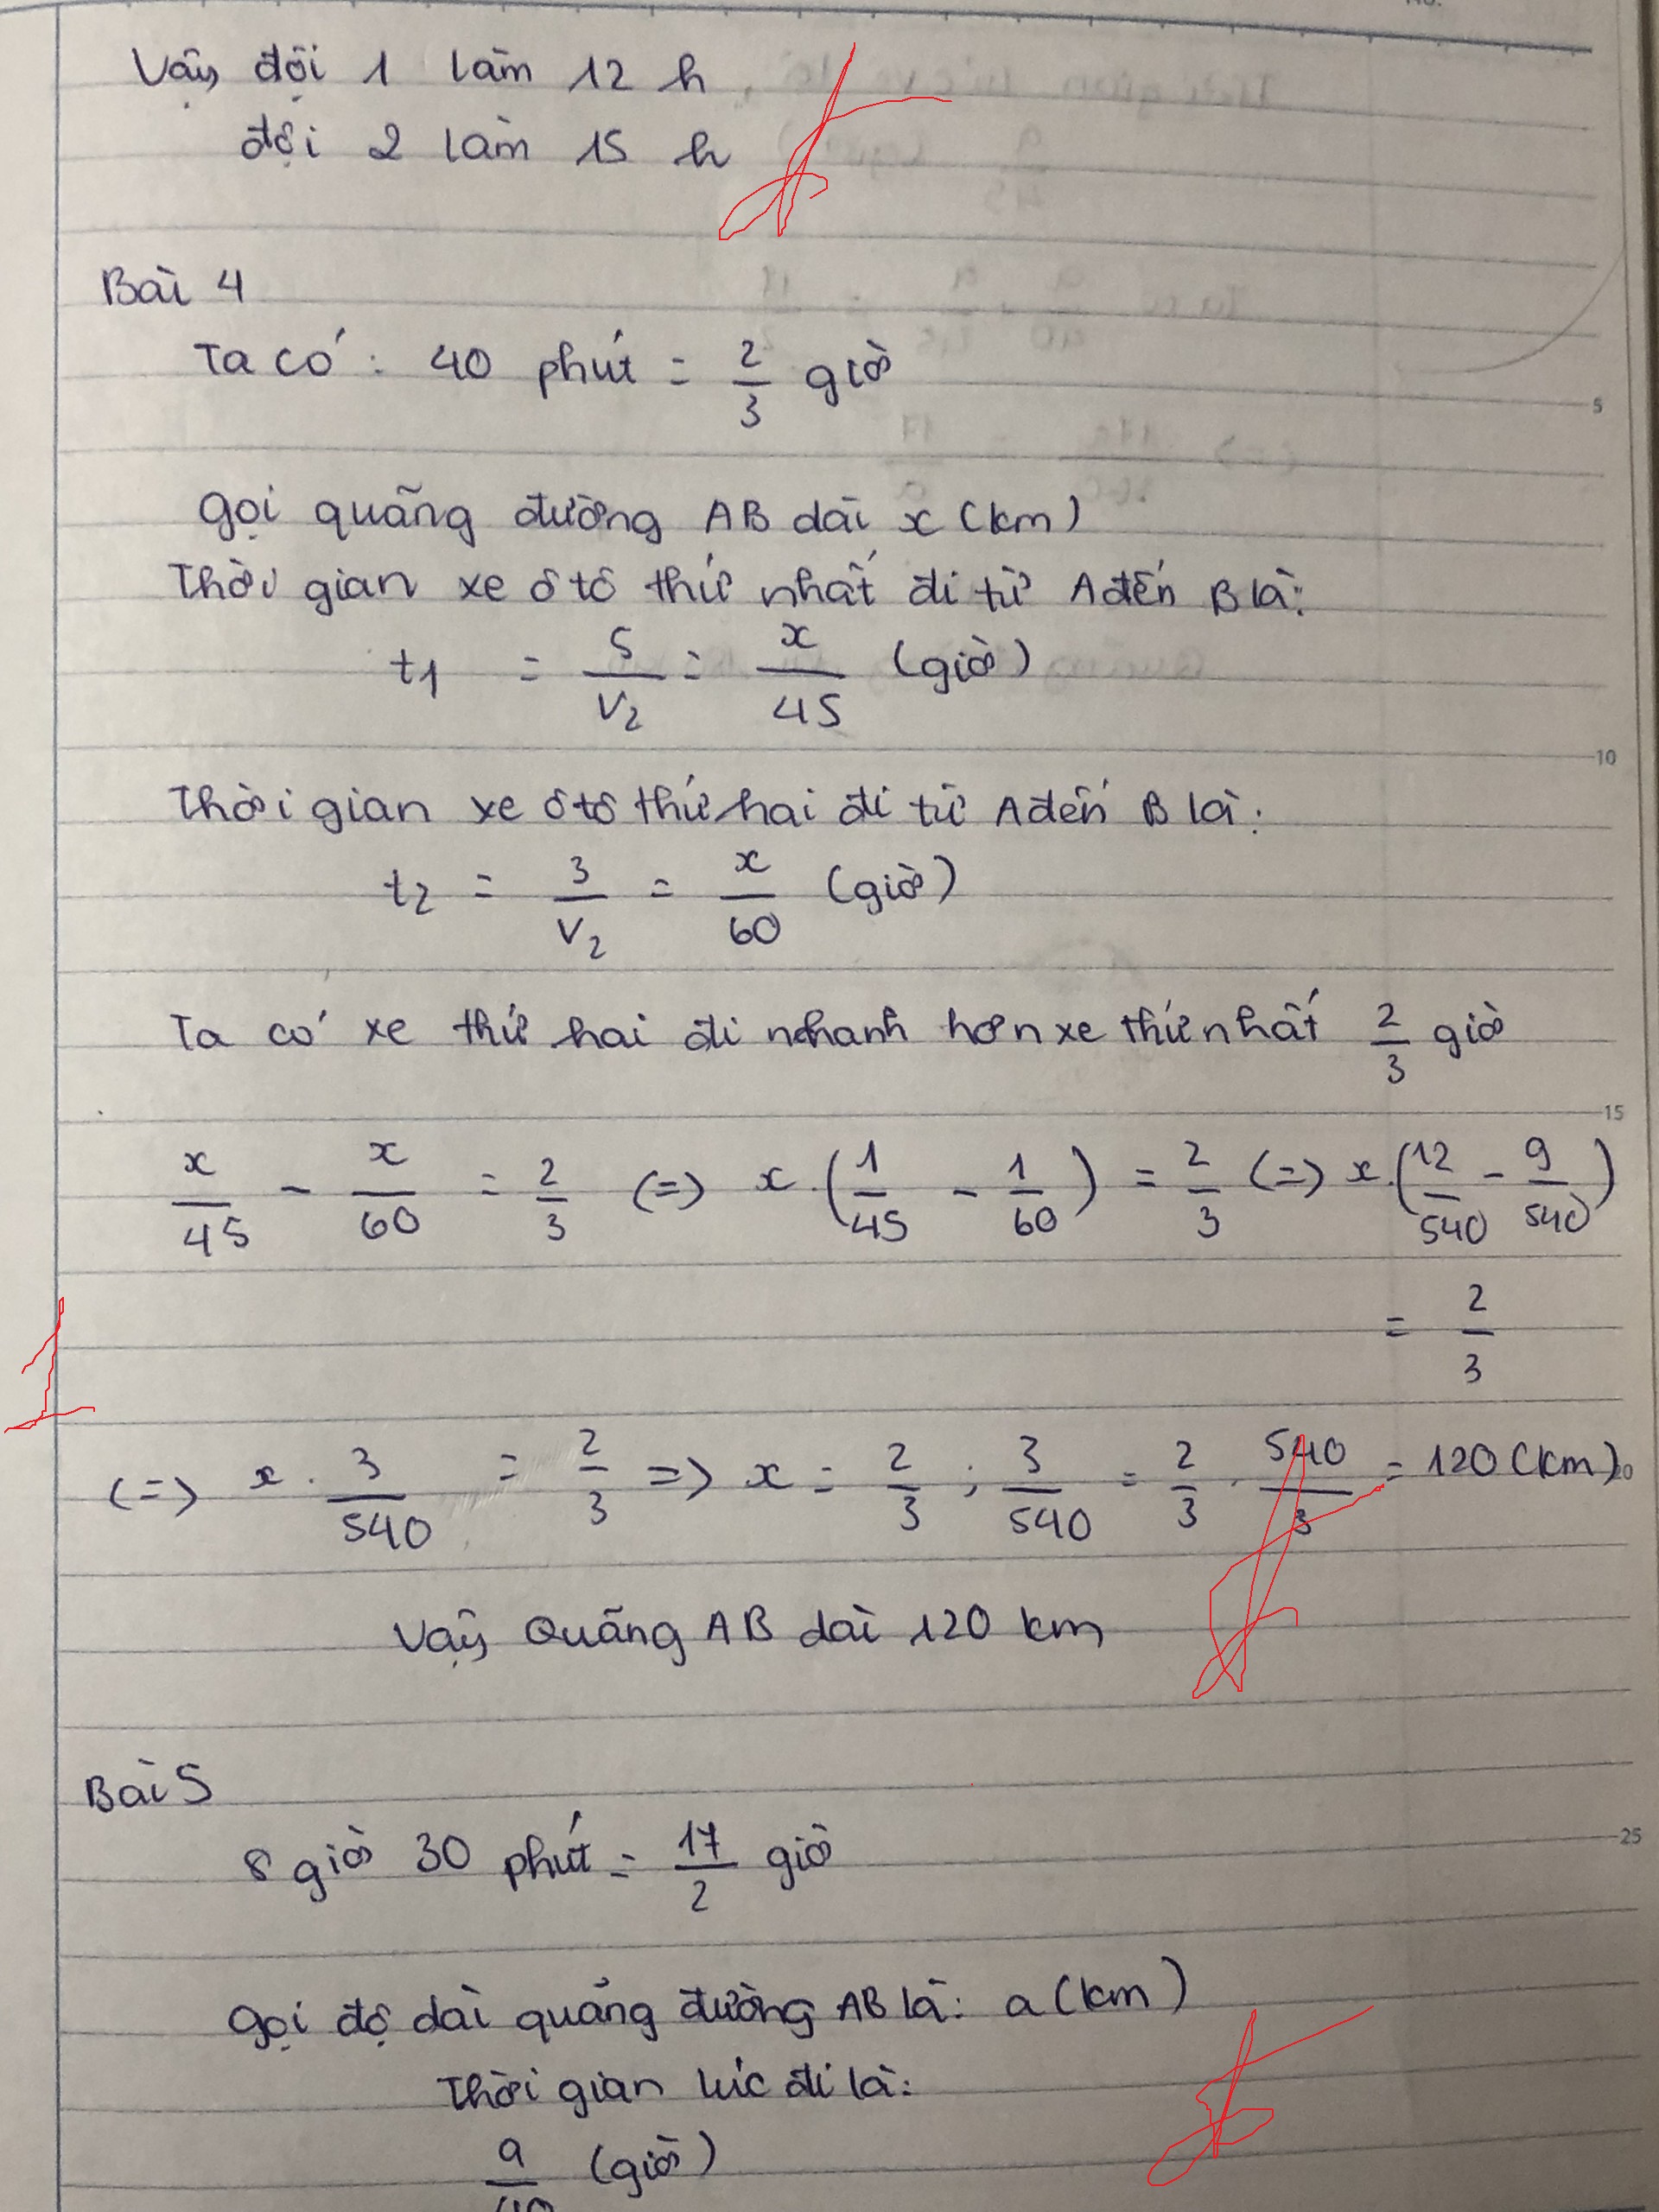 Vậy đội 1 làm 12 h
đội 2 làm 15 h
Bài 4
Ta có : 40 phút = 2/3 giờ
5
gọi quãng đường AB dài x (km)
Thời gian xe ô tô thứ nhất đi từ A đến B là:
t1 = S/V2 = x/45 (giờ)
10
Thời gian xe ô tô thứ hai đi từ A đến B là:
t2 = 3/V2 = x/60 (giờ)
Ta có xe thứ hai đi nhanh hơn xe thứ nhất 2/3 giờ
15
x/45 - x/60 = 2/3 (=) x.(1/45 - 1/60) = 2/3 (=) x.(12/540 - 9/540)
= 2/3
1
(=) x . 3/540 = 2/3 =) x = 2/3 : 3/540 = 2/3 . 540/3 = 120 (km)
20
Vậy Quãng AB dài 120 km
Bài 5
25
8 giờ 30 phút = 17/2 giờ
Gọi độ dài quảng đường AB là: a (km)
Thời gian lúc đi là:
a/40 (giờ)